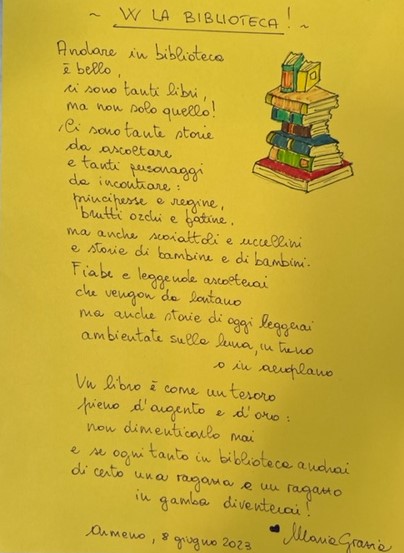 ~ W LA BIBLIOTECA! ~
Andare in biblioteca
è bello,
ci sono tanti libri,
ma non solo quello!
Ci sono tante storie
da ascoltare
e tanti personaggi
da incontrare:
principesse e regine,
brutti orchi e fatine,
ma anche scoiattoli e uccellini
e storie di bambine e di bambini.
Fiabe e leggende ascolterai
che vengon da lontano
ma anche storie di oggi leggerai
ambientate sulla luna, in treno
o in aeroplano
Un libro è come un tesoro
pieno d'argento e d'oro:
non dimenticarlo mai
e se ogni tanto in biblioteca andrai
di certo una ragazza o un ragazzo
in gamba diventerai!
Armeno, 8 giugno 2023 Maria Grazia